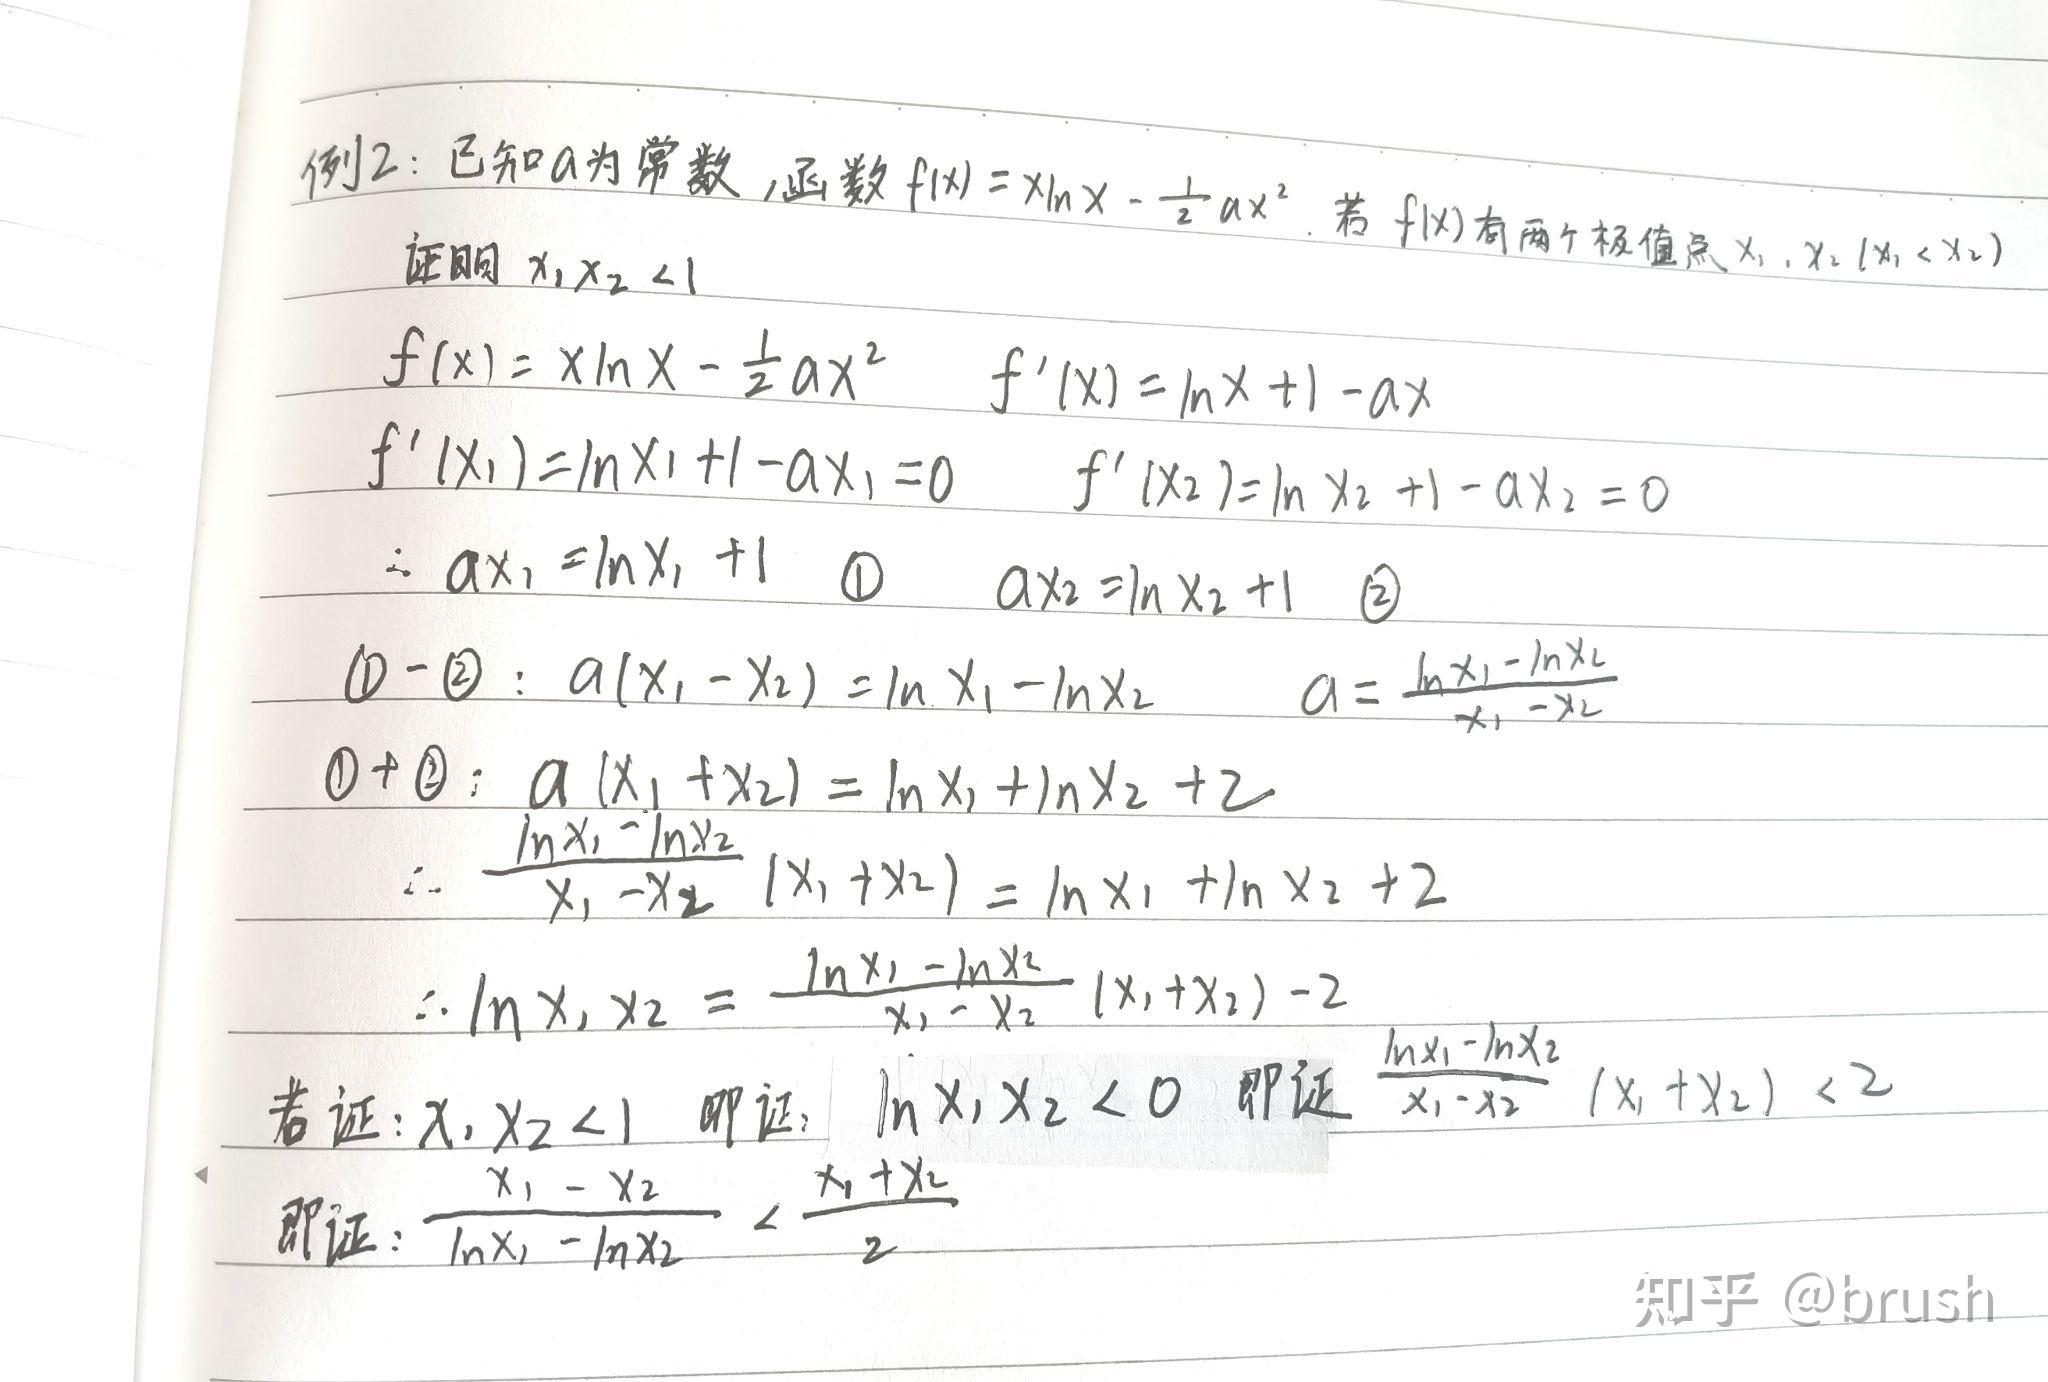 例2：已知a为常数,函数 f(x)=xlnx-½ax². 若 f(x)有两个极值点x₁,x₂(x₁<x₂)
证明 x₁x₂<1
f(x)=xlnx-½ax² f'(x)=lnx+1-ax
f'(x₁)=lnx₁+1-ax₁=0 f'(x₂)=lnx₂+1-ax₂=0
∴ ax₁=lnx₁+1 ① ax₂=lnx₂+1 ②
①-②：a(x₁-x₂)=lnx₁-lnx₂ a=\frac{lnx₁-lnx₂}{x₁-x₂}
①+②：a(x₁+x₂)=lnx₁+lnx₂+2
∴ \frac{lnx₁-lnx₂}{x₁-x₂}(x₁+x₂)=lnx₁+lnx₂+2
∴ lnx₁x₂=\frac{lnx₁-lnx₂}{x₁-x₂}(x₁+x₂)-2
若证：x₁x₂<1 即证：lnx₁x₂<0 即证 \frac{lnx₁-lnx₂}{x₁-x₂}(x₁+x₂)<2
即证：\frac{x₁-x₂}{lnx₁-lnx₂}<\frac{x₁+x₂}{2}
知乎 @brush